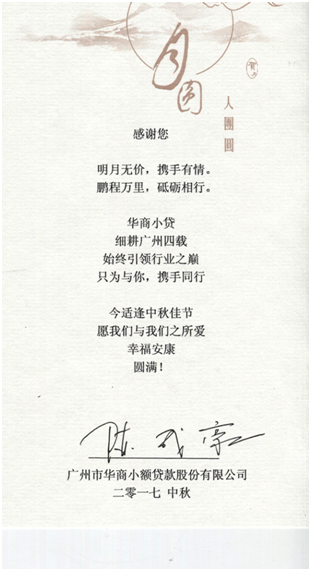 月圆
人團圓
感谢您
明月无价，携手有情。
鹏程万里，砥砺相行。
华商小贷
细耕广州四载
始终引领行业之巅
只为与你，携手同行
今适逢中秋佳节
愿我们与我们之所爱
幸福安康
圆满！
广州市华商小额贷款股份有限公司
二零一七 中秋